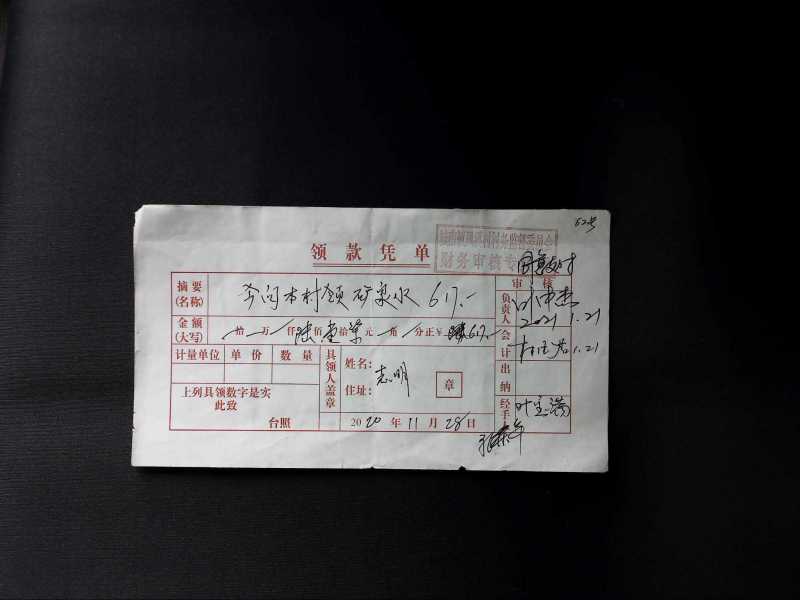 62号
财务审核专
领款凭单
同意支付
审核
摘要(名称) 本村领矿泉水 617.-
负责人 2021.1.21
金额(大写) 拾 万 仟 陆 佰 壹 拾 柒 元 角 分正¥ 617.-
会计 1.21
计量单位 单价 数量
具领人盖章
姓名: 志明
住址:
章
出纳
上列具领数字是实
此致
经手 叶宝满
台照
2020年11月28日